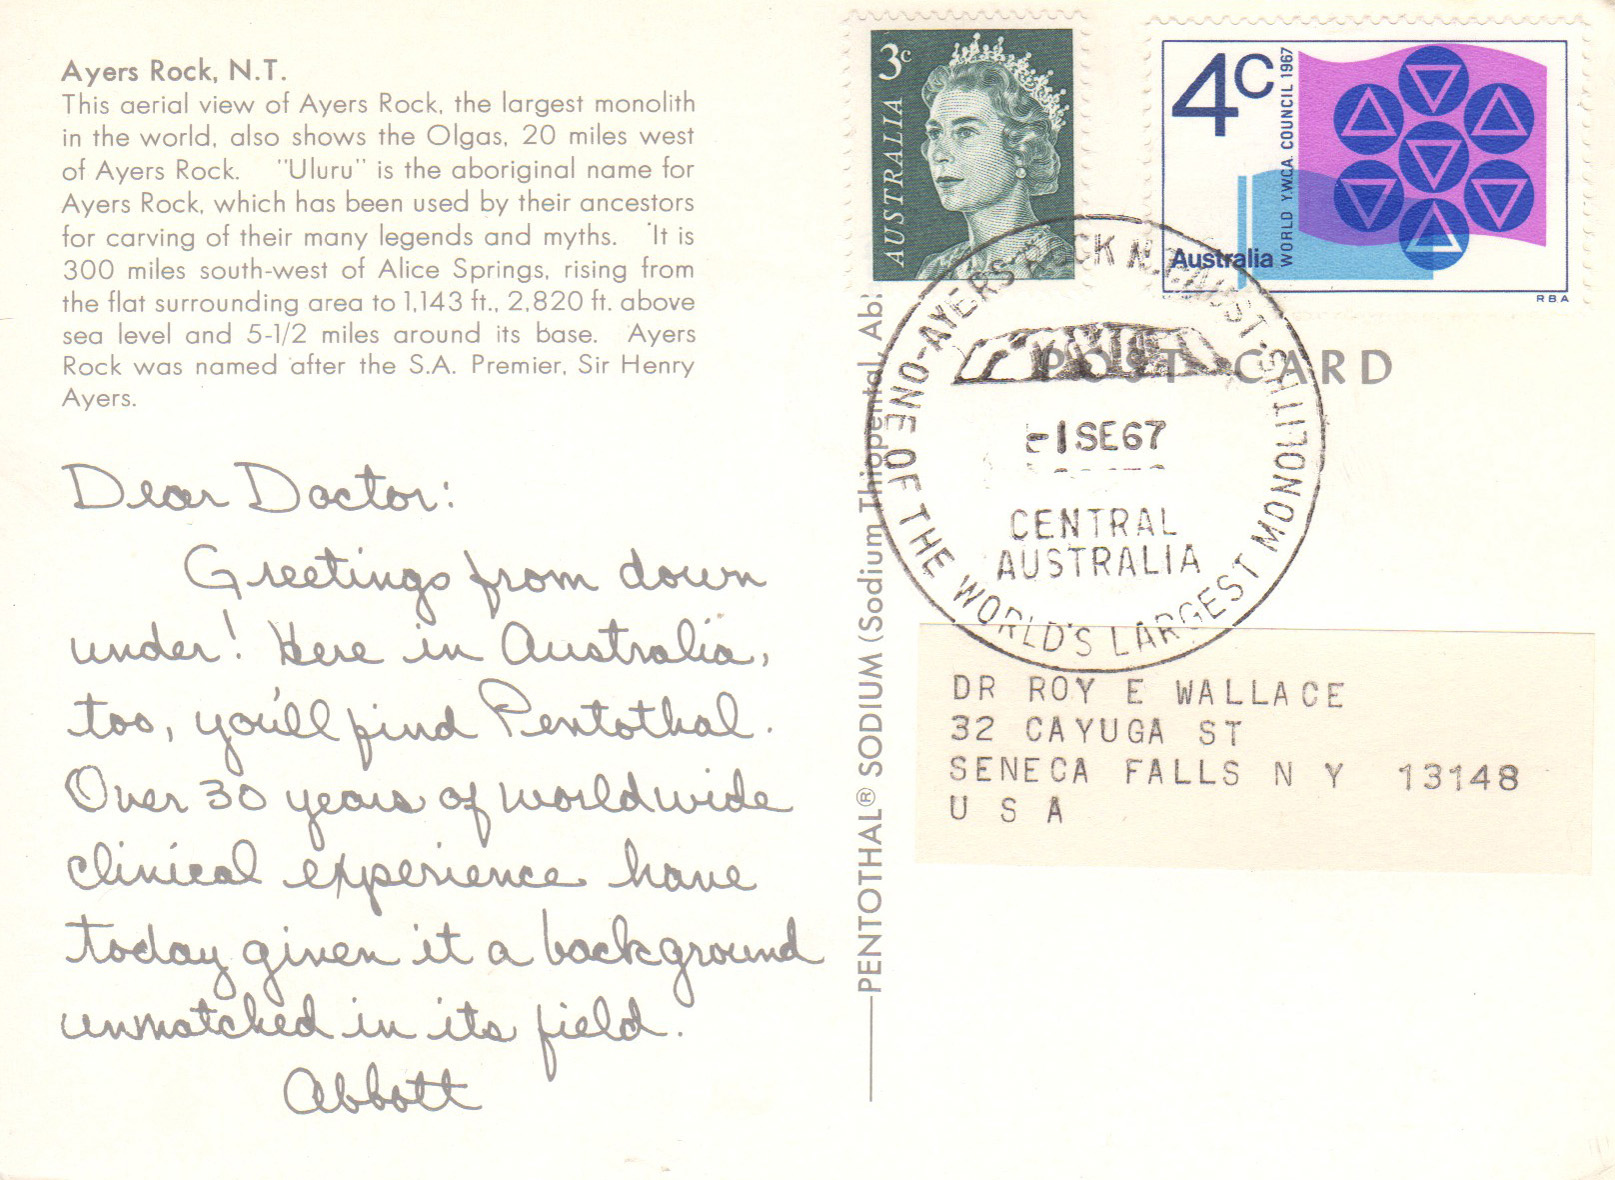 Ayers Rock, N.T.
This aerial view of Ayers Rock, the largest monolith
in the world, also shows the Olgas, 20 miles west
of Ayers Rock. "Uluru" is the aboriginal name for
Ayers Rock, which has been used by their ancestors
for carving of their many legends and myths. It is
300 miles south-west of Alice Springs, rising from
the flat surrounding area to 1,143 ft., 2,820 ft. above
sea level and 5-1/2 miles around its base. Ayers
Rock was named after the S.A. Premier, Sir Henry
Ayers.
Dear Doctor:
Greetings from down
under! Here in Australia,
too, you'll find Pentothal.
Over 30 years of worldwide
clinical experience have
today given it a background
unmatched in its field.
Abbott
PENTOTHAL® SODIUM (Sodium Thiopental, Ab
3c
AUSTRALIA
4c
WORLD Y.W.C.A. COUNCIL 1967
Australia
RBA
POST CARD
AYERS ROCK N.T. AUST.
ONE OF THE WORLD'S LARGEST MONOLITHS
-1SE67
CENTRAL
AUSTRALIA
DR ROY E WALLACE
32 CAYUGA ST
SENECA FALLS N Y 13148
U S A